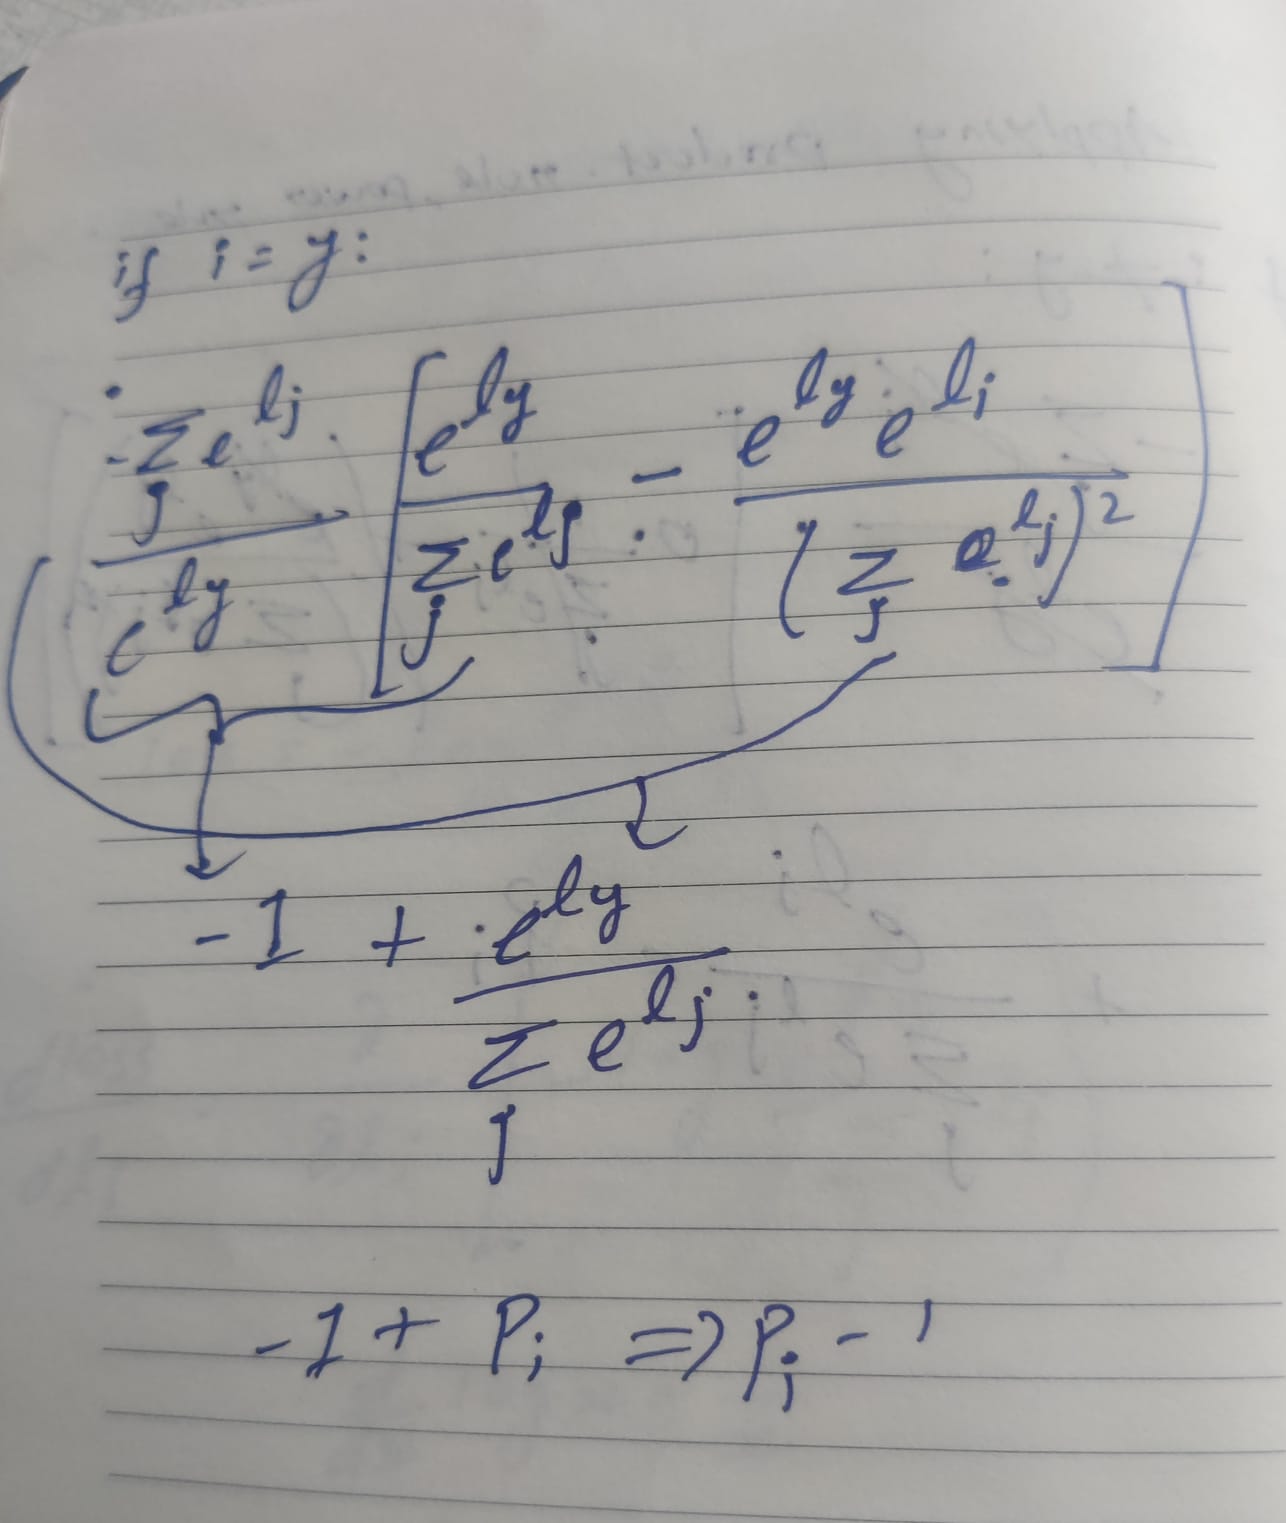 if i = y:
- Σ_j e^{lj} / e^{ly} [ e^{ly} / Σ_j e^{lj} - e^{ly} e^{li} / (Σ_j e^{lj})^2 ]
-1 + e^{ly} / Σ_j e^{lj}
-1 + Pi => Pi - 1